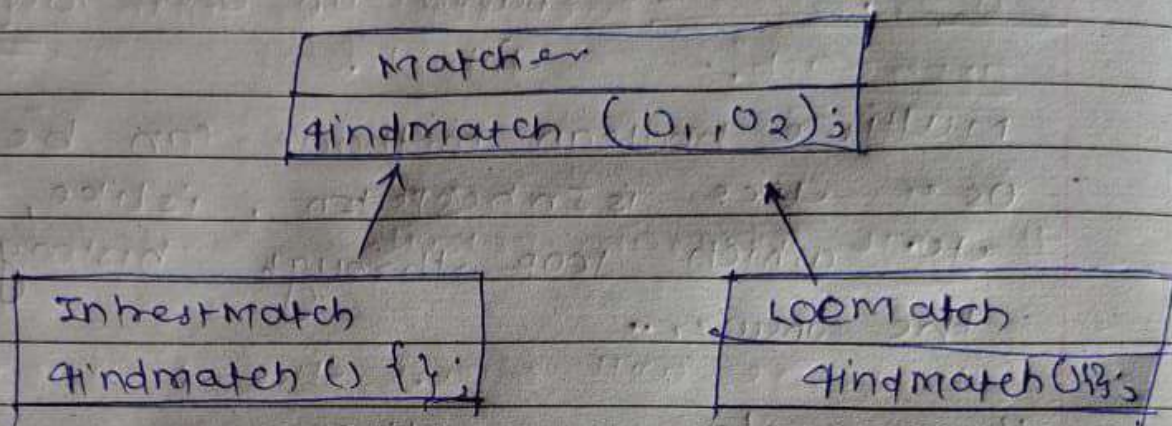 Matcher
findmatch (U1, U2);
InterestMatch
findmatch () {};
LocMatch
findmatch(){};